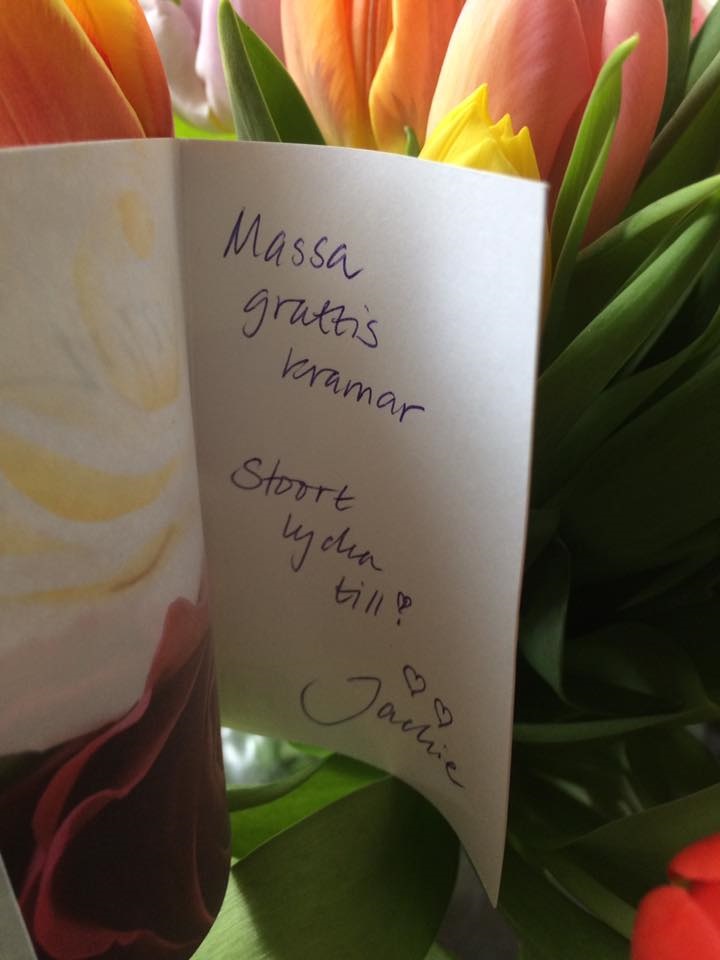 Massa
grattis
kramar
Stoort
lycka
till!
Jackie